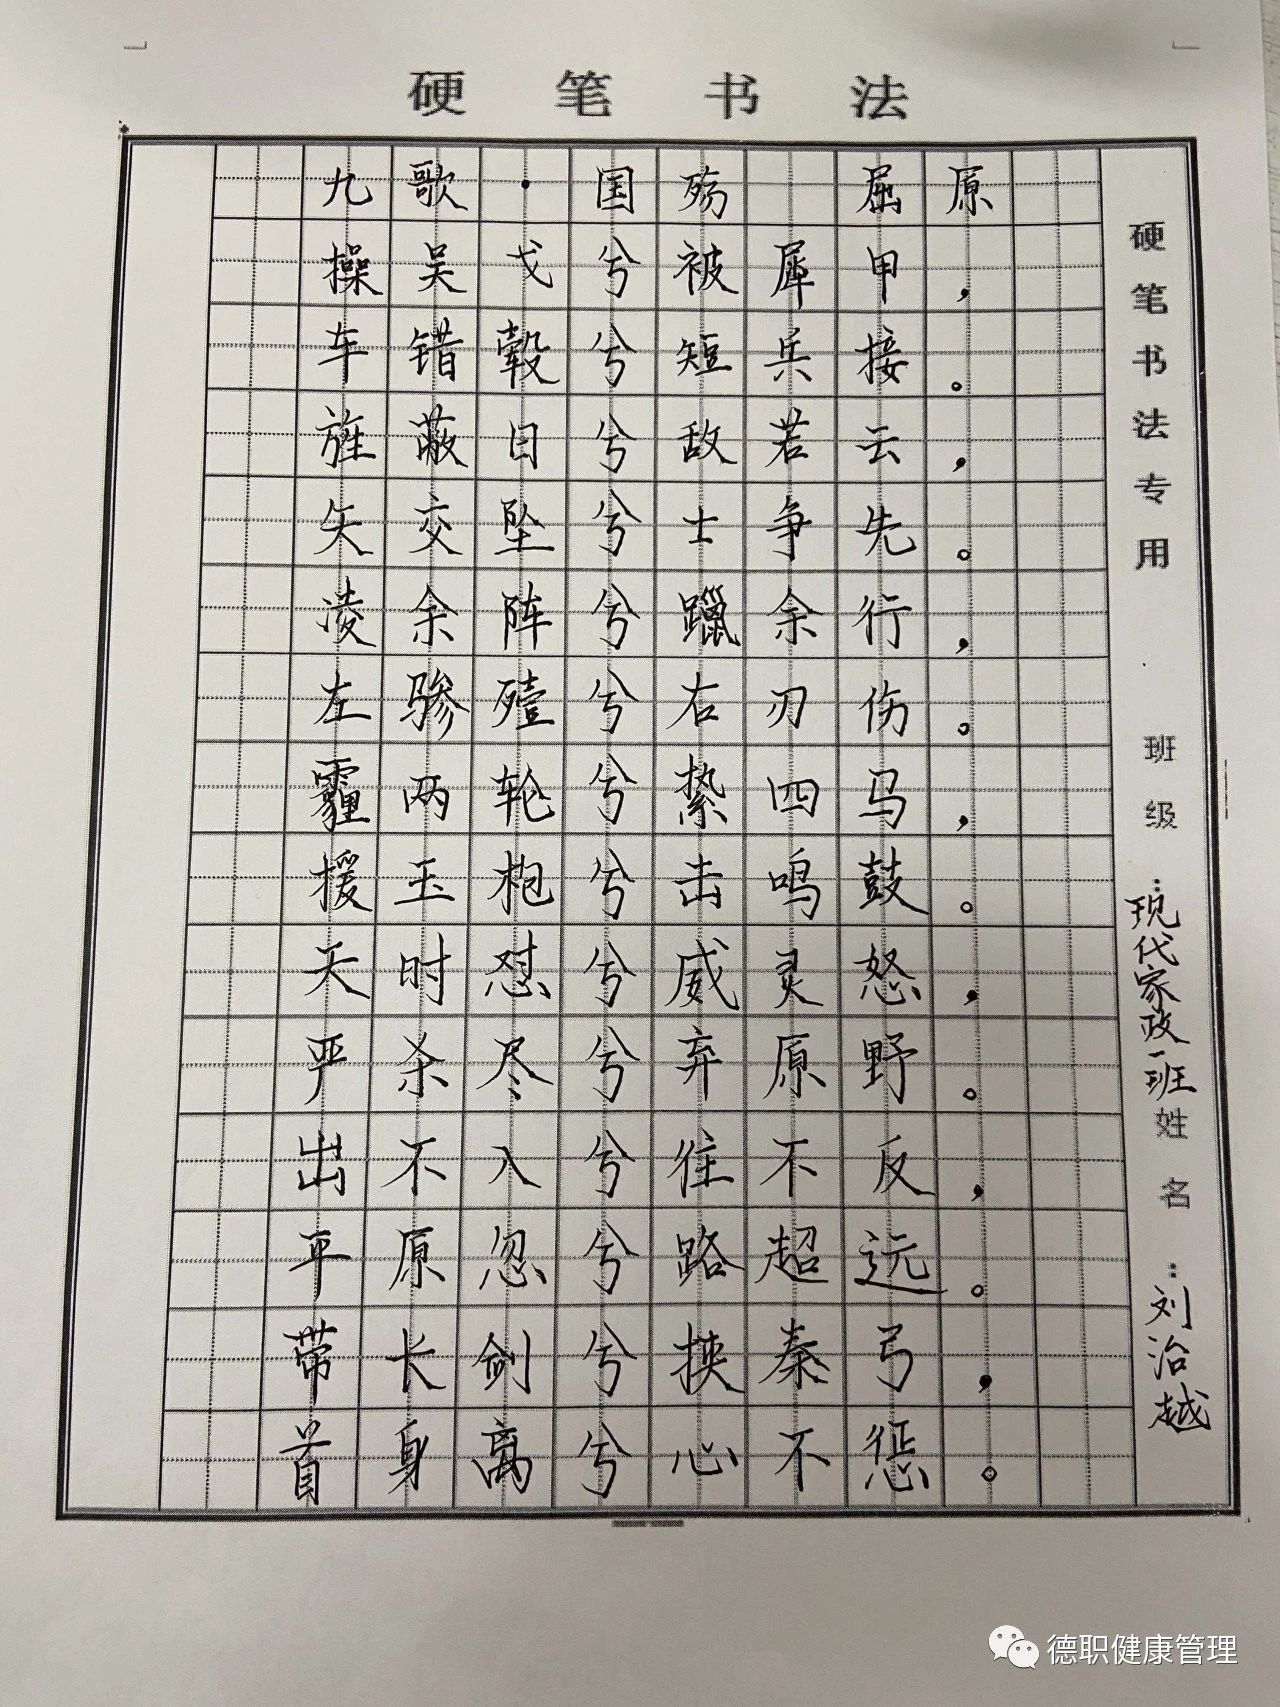 硬笔书法
九歌·国殇 屈原
操吴戈兮被犀甲，
车错毂兮短兵接。
旌蔽日兮敌若云，
矢交坠兮士争先。
凌余阵兮躐余行，
左骖殪兮右刃伤。
霾两轮兮絷四马，
援玉枹兮击鸣鼓。
天时怼兮威灵怒，
严杀尽兮弃原野。
出不入兮往不反，
平原忽兮路超远。
带长剑兮挟秦弓，
首身离兮心不惩。
硬笔书法专用
班级：现代家政一班
姓名：刘治越
德职健康管理